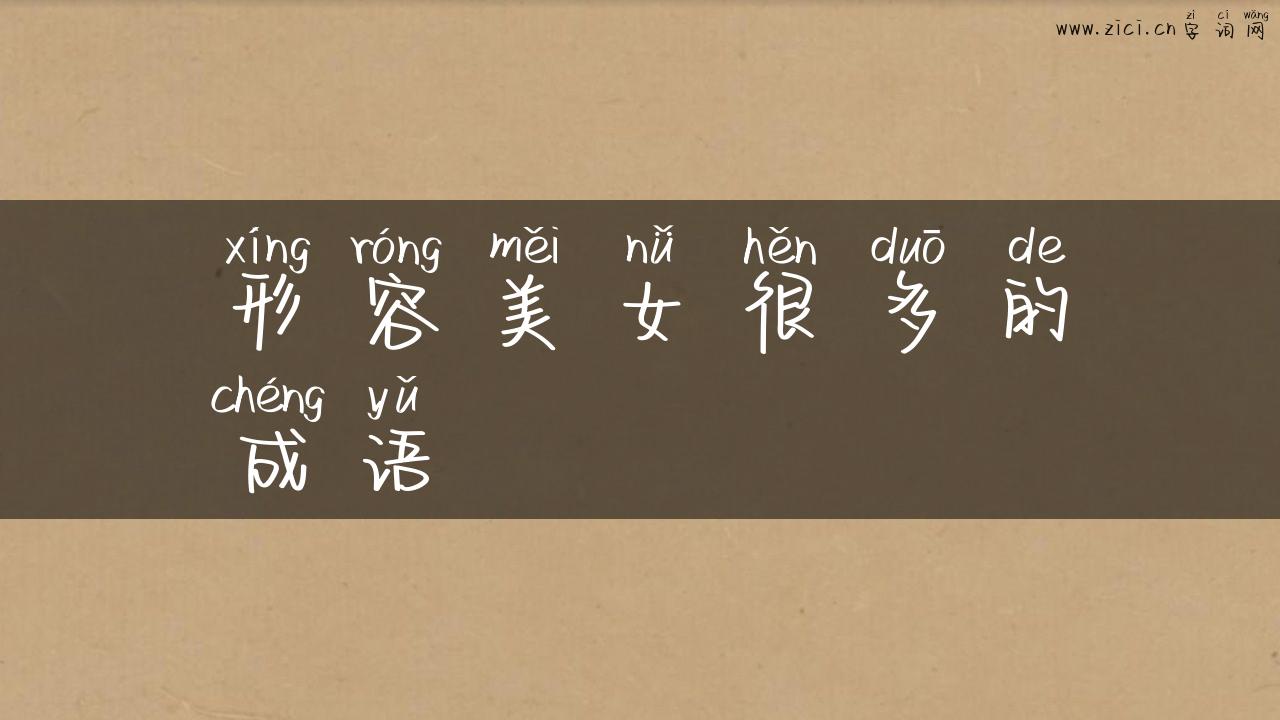 zì cí wǎng
www.zici.cn 字词网
xíng róng měi nǚ hěn duō de
形容美女很多的
chéng yǔ
成语